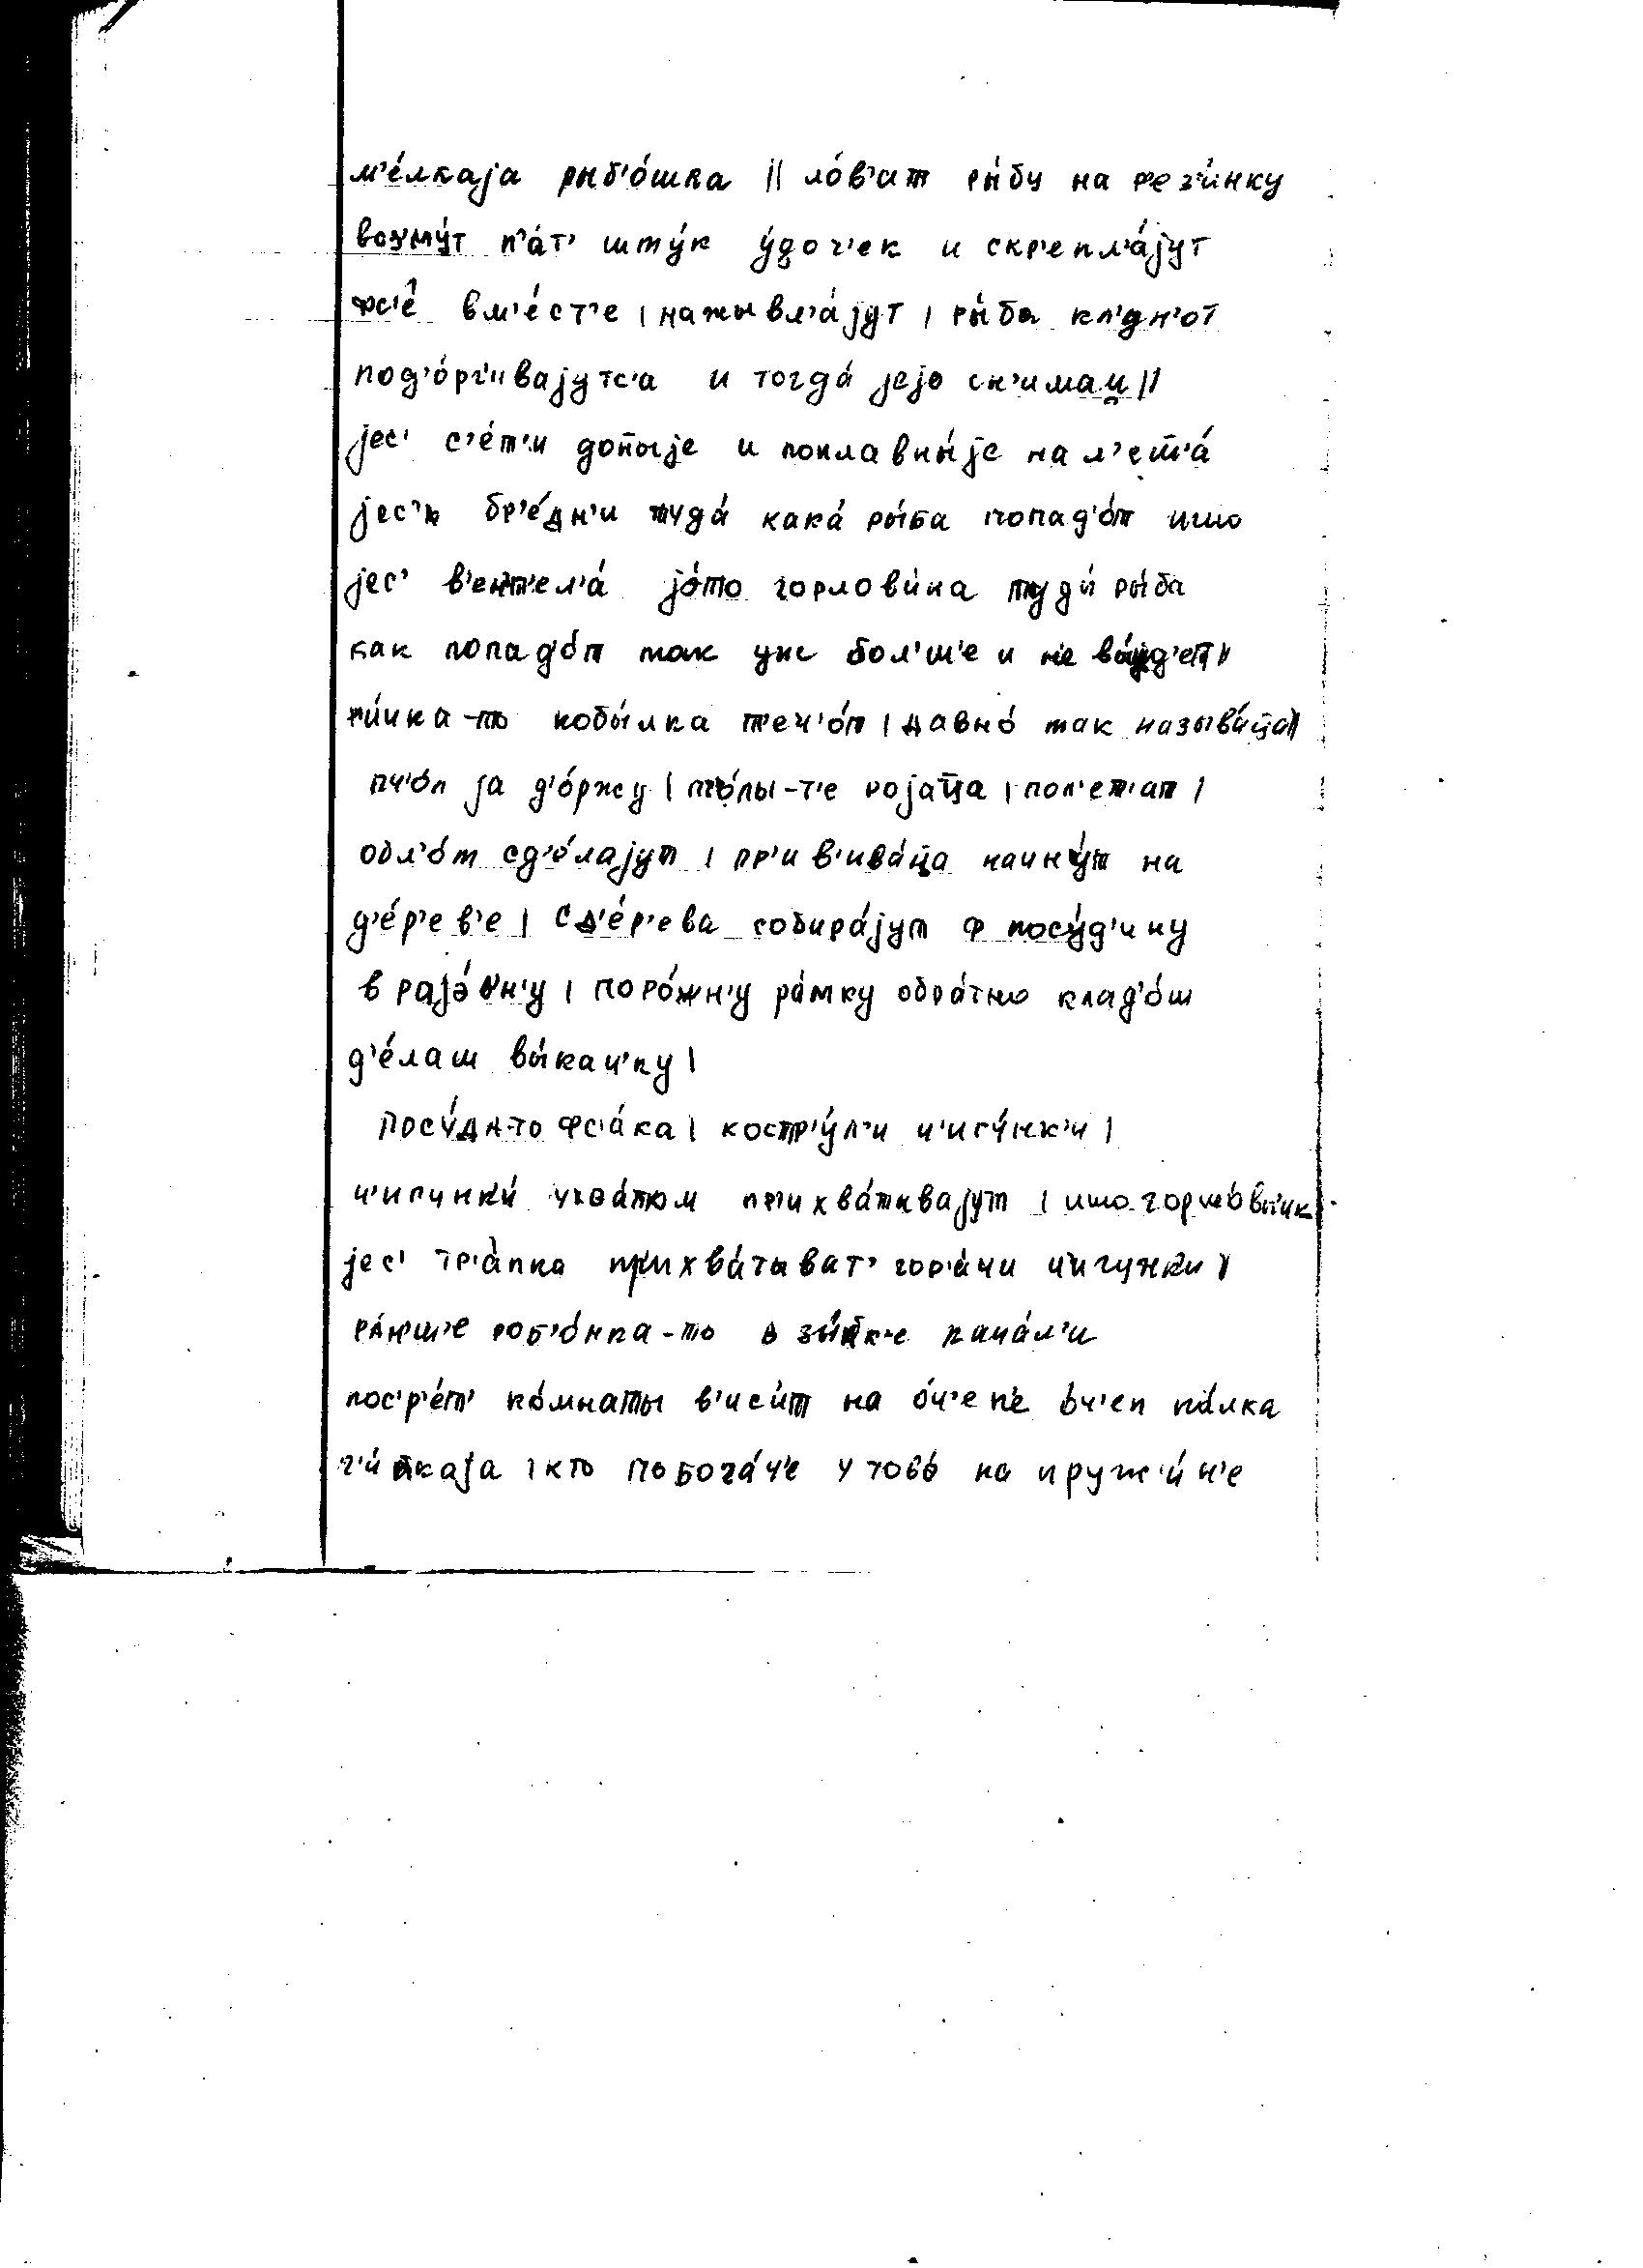 м'е́лкаjа рыб'о́шка || ло́в'ат ры́бу на рез'и́нку
возму́т п'ат' шту́к у́доч'ек и скр'епл'а́jут
фс'е̂ вм'е́ст'е | нажывл'а́jут | ры́ба кл'у́н'от
под'о́рг'ивajутс'а и тогда́ jejо сн'имаи̯ ||
jес' с'е́т'и до̄ныjе и поплавны́jе на л'ещ'а́
jес'т' бр'е́дн'и туда́ кака́ ры́ба попад'о́т ишо
jес' в'ент'ел'а́ jе́то горлови́на туды́ ры́ба
как попад'о́т так уж бол'ш'е и не вы́jд'ет ||
р'и́чка-то кобы́лка теч'о́т | давно́ так называ́ца ||
пч'о́л jа д'о́ржу | пч'о́лы-т'е роjа́ца | пол'ет'ат |
обл'о́т сд'е́лаjут | пр'ив'ива́ца начну́т на
д'е́р'ев'е | с д'е́р'ева собира́jут ф посу́д'ину
в раjо́вн'у | поро́жн'у ра́мку обра́тно клад'о́ш
д'е́лаш вы́кач'ку |
посу́дн-то фс'а́ка | костр'у́л'и ч'игу́нк'и |
ч'игунки́ ухва́том прихва́тивajут | ишо горшо́вн'ик
jес' тр'а̀пка прихва́тыват' гор'а́чи чигунки́ ||
ра́н'ш'е роб'о́нка-то в зы́пк'е кача́л'и
пос'р'е́т' ко́мнаты в'иси́т на о́ч'еп'е́ о́ч'еп па́лка
г'и́пкаjа | кто побога́ч'е у тово́ на пруж'и́н'е